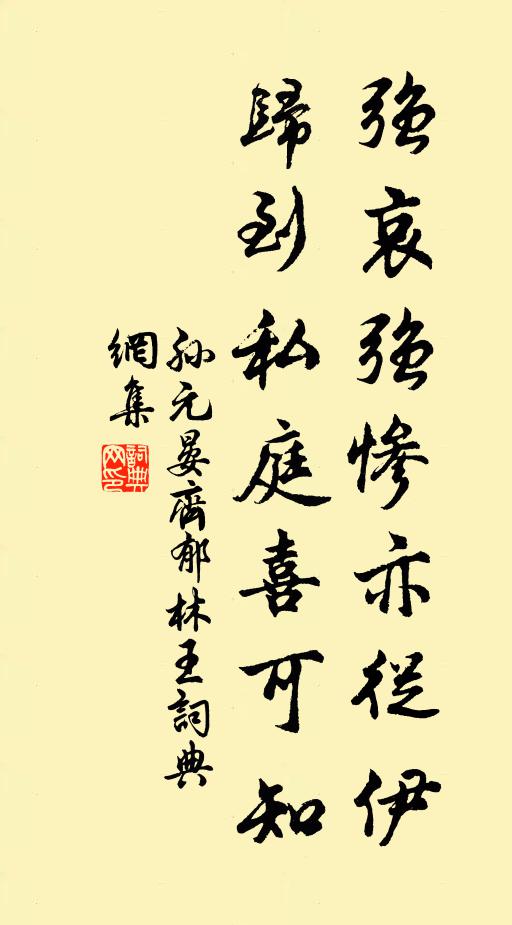 強哀強慘亦從伊
歸到私庭喜可知
孫元晏齊郁林王詞典
網集
詞典網印